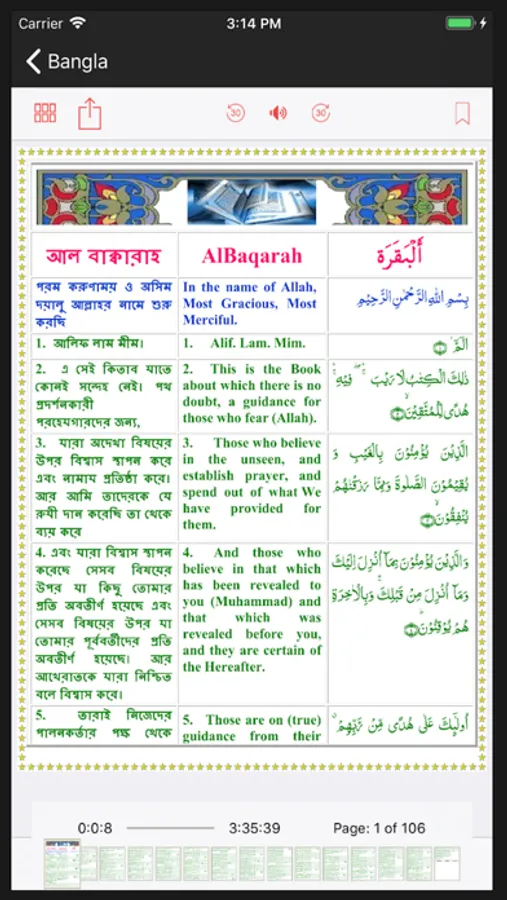 Carrier 3:14 PM
Bangla
30 30
আল বাক্বারাহ AlBaqarah أَلْبَقَرَة
পরম করুণাময় ও অসিম
দয়ালু আল্লাহর নামে শুরু
করছি
In the name of Allah,
Most Gracious, Most
Merciful.
بِسْمِ اللهِ الرَّحْمٰنِ الرَّحِيْمِ
1. আলিফ লাম মীম।
1. Alif. Lam. Mim.
الٓمّٓ ۚ
2. এ সেই কিতাব যাতে
কোনই সন্দেহ নেই। পথ
প্রদর্শনকারী
পরহেযগারদের জন্য,
2. This is the Book
about which there is no
doubt, a guidance for
those who fear (Allah).
ذٰلِكَ الْكِتٰبُ لَا رَيْبَ ۛ فِيْهِ ۛ
هُدًى لِّلْمُتَّقِيْنَ
3. যারা অদেখা বিষয়ের
উপর বিশ্বাস স্থাপন করে
এবং নামায প্রতিষ্ঠা করে।
আর আমি তাদেরকে যে
রুযী দান করেছি তা থেকে
ব্যয় করে
3. Those who believe
in the unseen, and
establish prayer, and
spend out of what We
have provided for
them.
الَّذِيْنَ يُؤْمِنُوْنَ بِالْغَيْبِ وَ
يُقِيْمُوْنَ الصَّلٰوةَ وَمِمَّا رَزَقْنٰهُمْ
يُنْفِقُوْنَ
4. এবং যারা বিশ্বাস স্থাপন
করেছে সেসব বিষয়ের
উপর যা কিছু তোমার
প্রতি অবতীর্ণ হয়েছে এবং
সেসব বিষয়ের উপর যা
তোমার পূর্ববর্তীদের প্রতি
অবতীর্ণ হয়েছে। আর
আখেরাতকে যারা নিশ্চিত
বলে বিশ্বাস করে।
4. And those who
believe in that which
has been revealed to
you (Muhammad) and
that which was
revealed before you,
and they are certain of
the Hereafter.
وَالَّذِيْنَ يُؤْمِنُوْنَ بِمَآ اُنْزِلَ اِلَيْكَ
وَمَآ اُنْزِلَ مِنْ قَبْلِكَ ۚ وَبِالْاٰخِرَةِ
هُمْ يُوْقِنُوْنَ
5. তারাই নিজেদের
পালনকর্তার পক্ষ থেকে
5. Those are on (true)
guidance from their
اُولٰٓئِكَ عَلٰى هُدًى مِّنْ رَّبِّهِمْ ۗ
0:0:8 3:35:39 Page: 1 of 106